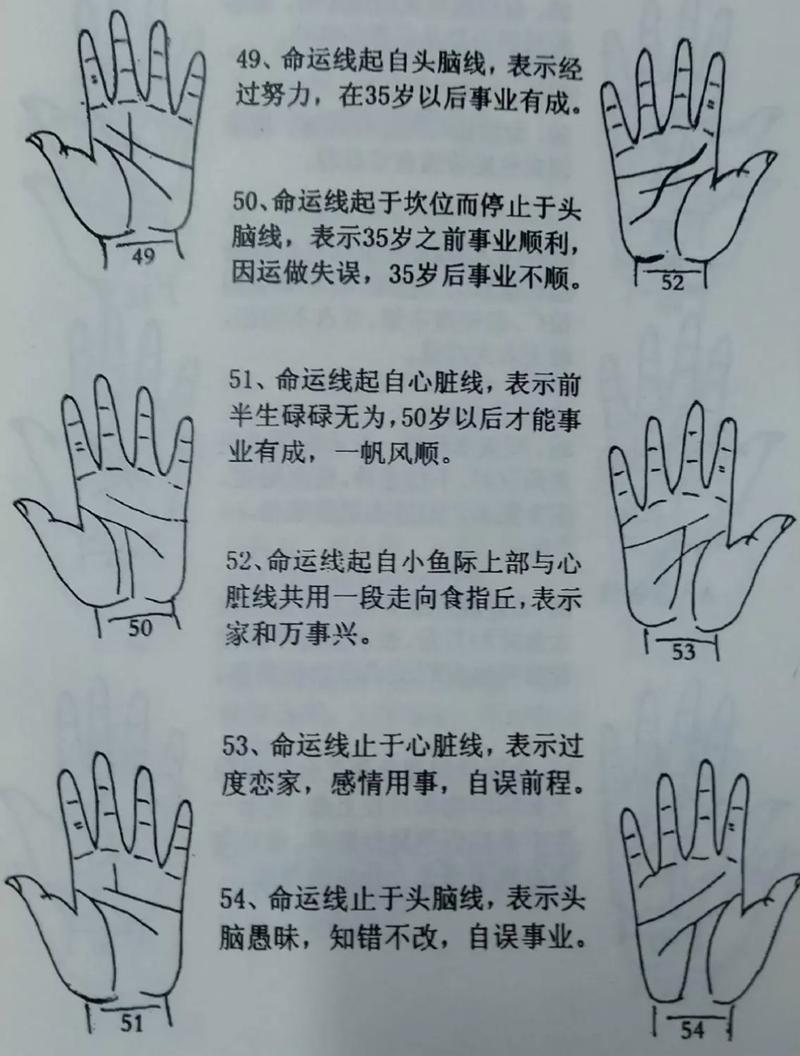 49、命运线起自头脑线，表示经
过努力，在35岁以后事业有成。
49
52
50、命运线起于坎位而停止于头
脑线，表示35岁之前事业顺利，
因运做失误，35岁后事业不顺。
51、命运线起自心脏线，表示前
半生碌碌无为，50岁以后才能事
业有成，一帆风顺。
50
53
52、命运线起自小鱼际上部与心
脏线共用一段走向食指丘，表示
家和万事兴。
53、命运线止于心脏线，表示过
度恋家，感情用事，自误前程。
54、命运线止于头脑线，表示头
脑愚昧，知错不改，自误事业。
51
54